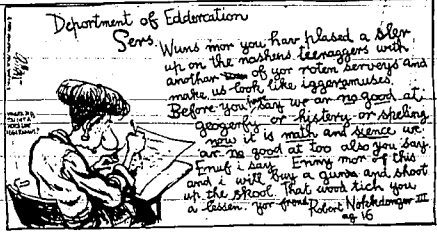 Department of Eddercation
Sers,
Wuns mor you hav plased a sler
up on the nashens teenraggers with
anothar of yor roten serveys and
make us look like iggeramuses.
Before you say we ar no good at
geogerfy or histery or speling
now it is math and sience we
ar no good at too also you say.
Enuf i say. Enny mor of this
and i will buy a gunn and shoot
up the skool. That wood tich you
a lessen. yor frend,
Robert Notekdonger III
ag 16